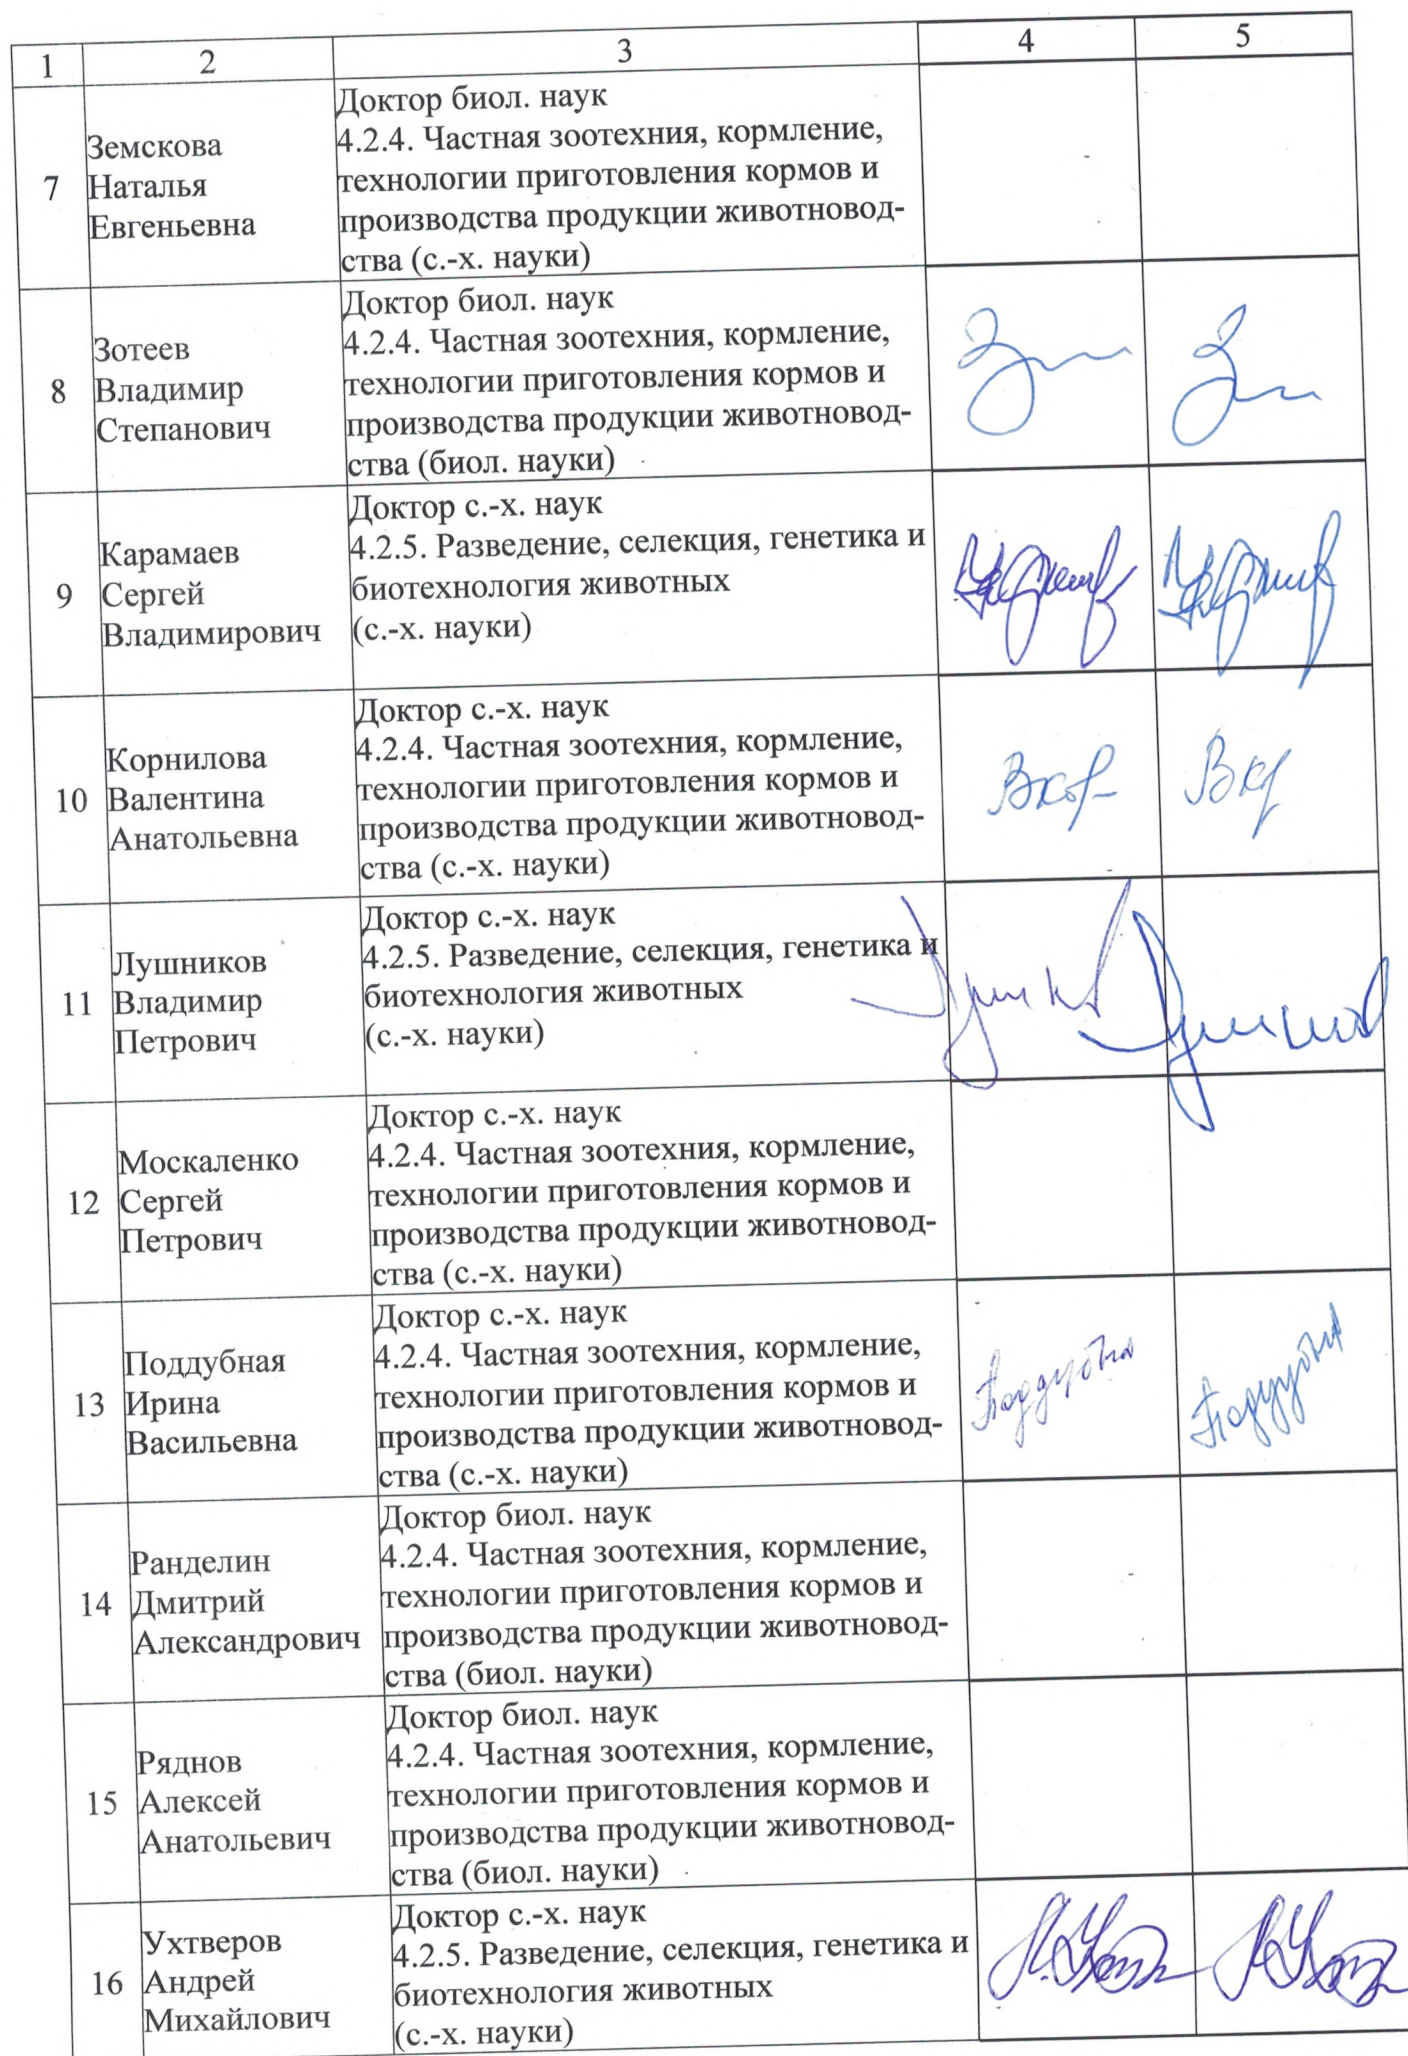 1 2 3 4 5
7
Земскова
Наталья
Евгеньевна
Доктор биол. наук
4.2.4. Частная зоотехния, кормление,
технологии приготовления кормов и
производства продукции животновод-
ства (с.-х. науки)
8
Зотеев
Владимир
Степанович
Доктор биол. наук
4.2.4. Частная зоотехния, кормление,
технологии приготовления кормов и
производства продукции животновод-
ства (биол. науки)
9
Карамаев
Сергей
Владимирович
Доктор с.-х. наук
4.2.5. Разведение, селекция, генетика и
биотехнология животных
(с.-х. науки)
10
Корнилова
Валентина
Анатольевна
Доктор с.-х. наук
4.2.4. Частная зоотехния, кормление,
технологии приготовления кормов и
производства продукции животновод-
ства (с.-х. науки)
11
Лушников
Владимир
Петрович
Доктор с.-х. наук
4.2.5. Разведение, селекция, генетика и
биотехнология животных
(с.-х. науки)
12
Москаленко
Сергей
Петрович
Доктор с.-х. наук
4.2.4. Частная зоотехния, кормление,
технологии приготовления кормов и
производства продукции животновод-
ства (с.-х. науки)
13
Поддубная
Ирина
Васильевна
Доктор с.-х. наук
4.2.4. Частная зоотехния, кормление,
технологии приготовления кормов и
производства продукции животновод-
ства (с.-х. науки)
14
Ранделин
Дмитрий
Александрович
Доктор биол. наук
4.2.4. Частная зоотехния, кормление,
технологии приготовления кормов и
производства продукции животновод-
ства (биол. науки)
15
Ряднов
Алексей
Анатольевич
Доктор биол. наук
4.2.4. Частная зоотехния, кормление,
технологии приготовления кормов и
производства продукции животновод-
ства (биол. науки)
16
Ухтверов
Андрей
Михайлович
Доктор с.-х. наук
4.2.5. Разведение, селекция, генетика и
биотехнология животных
(с.-х. науки)